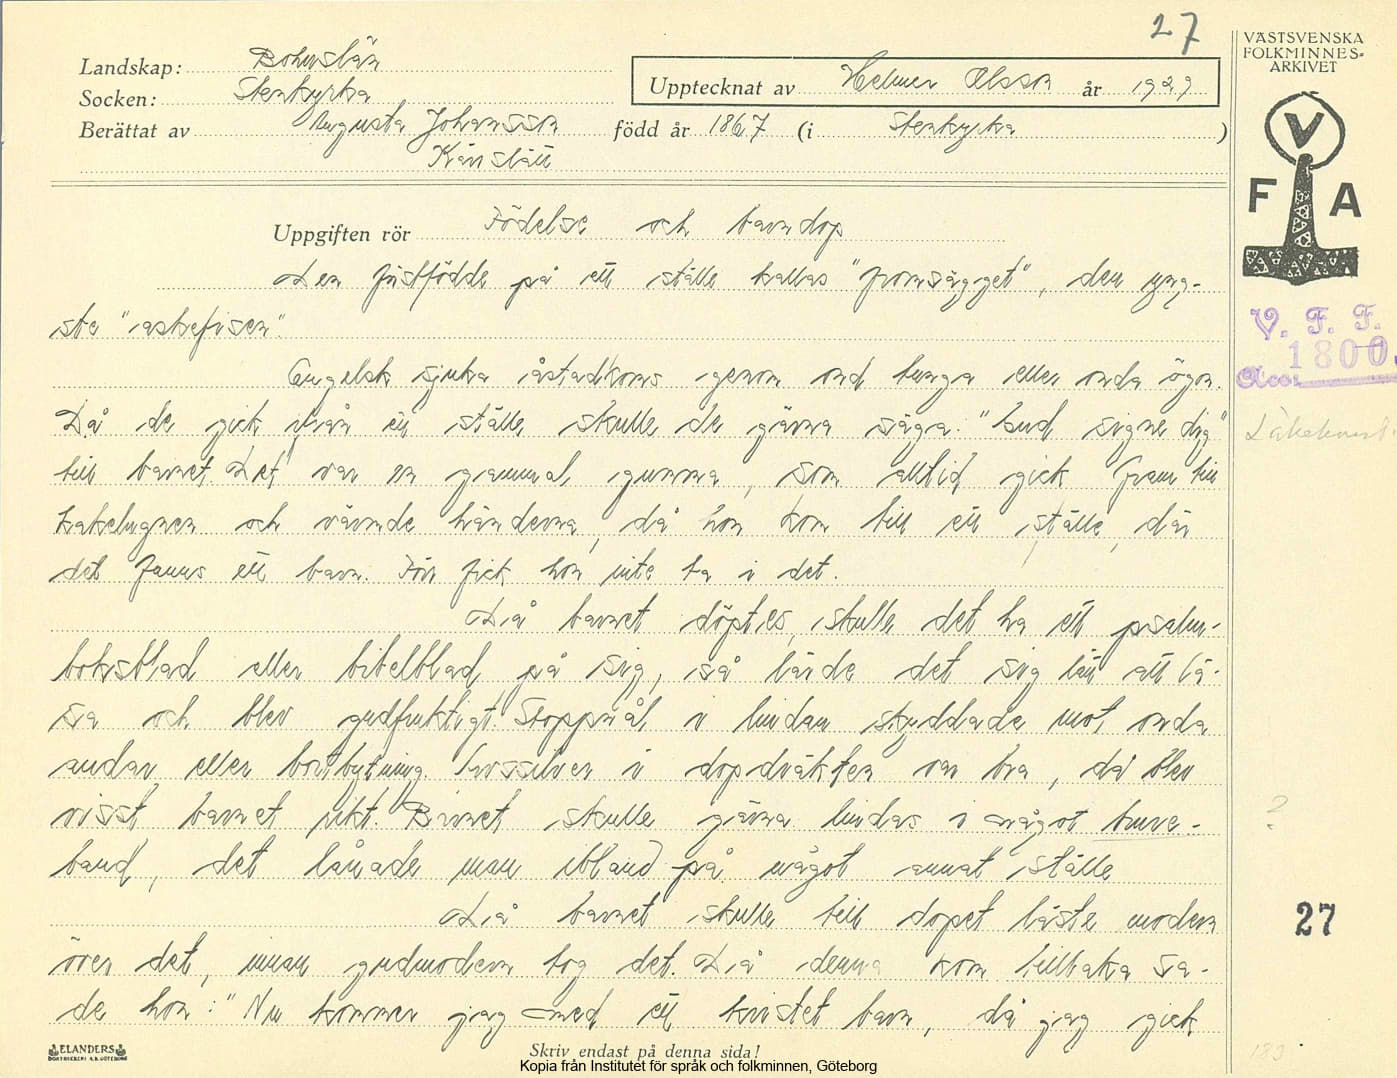 27
VÄSTSVENSKA
FOLKMINNES-
ARKIVET
Landskap: Bohuslän
Socken: Stenkyrka
Upptecknat av Helmer Olsson år 1929
Berättat av Augusta Johansson född år 1867 (i Stenkyrka )
Kårslätt
V
F A
Uppgiften rör Födelse och barndop
Den förstfödde på ett ställe kallas "fromsägget", den yng-
ste "askefisen".
V. F. F.
Acc: 1800.
Engelsk sjuka åstadkoms genom ond tunga eller onda ögon.
Då de gick ifrån ett ställe skulle de gärna säga: "Gud signe dig"
Läkekonst.
till barnet. Det var en gammal gumma, som alltid gick fram till
kakelugnen och värmde händerna, då hon kom till ett ställe, där
det fanns ett barn. Förr fick hon inte ta i det.
Då barnet döptes, skulle det ha ett psalm-
boksblad eller bibelblad på sig, så lärde det sig lätt att lä-
sa och blev gudfruktigt. Stoppnål i lindan skyddade mot onda
andar eller bortbytning. Arvsilver i dopdräkten var bra, då blev
visst barnet rikt. Barnet skulle gärna lindas i något
?
band, det lånade man ibland på något annat ställe
Då barnet skulle till dopet läste modern
27
över det, innan gudmodern tog det. Då denna kom tillbaka sa-
de hon: "Nu kommer jag med ett kristet barn, då jag gick
ELANDERS
BOKTRYCKERI A.B. GÖTEBORG
Skriv endast på denna sida!
Kopia från Institutet för språk och folkminnen, Göteborg